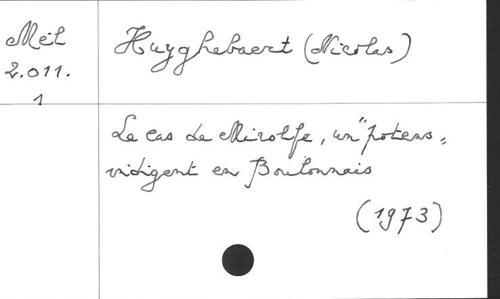 Mél
2.011.
1
Huyghebaert (Nicolas)
Le cas de Mirolfe, un "potens"
indigent en Boulonnais
(1973)